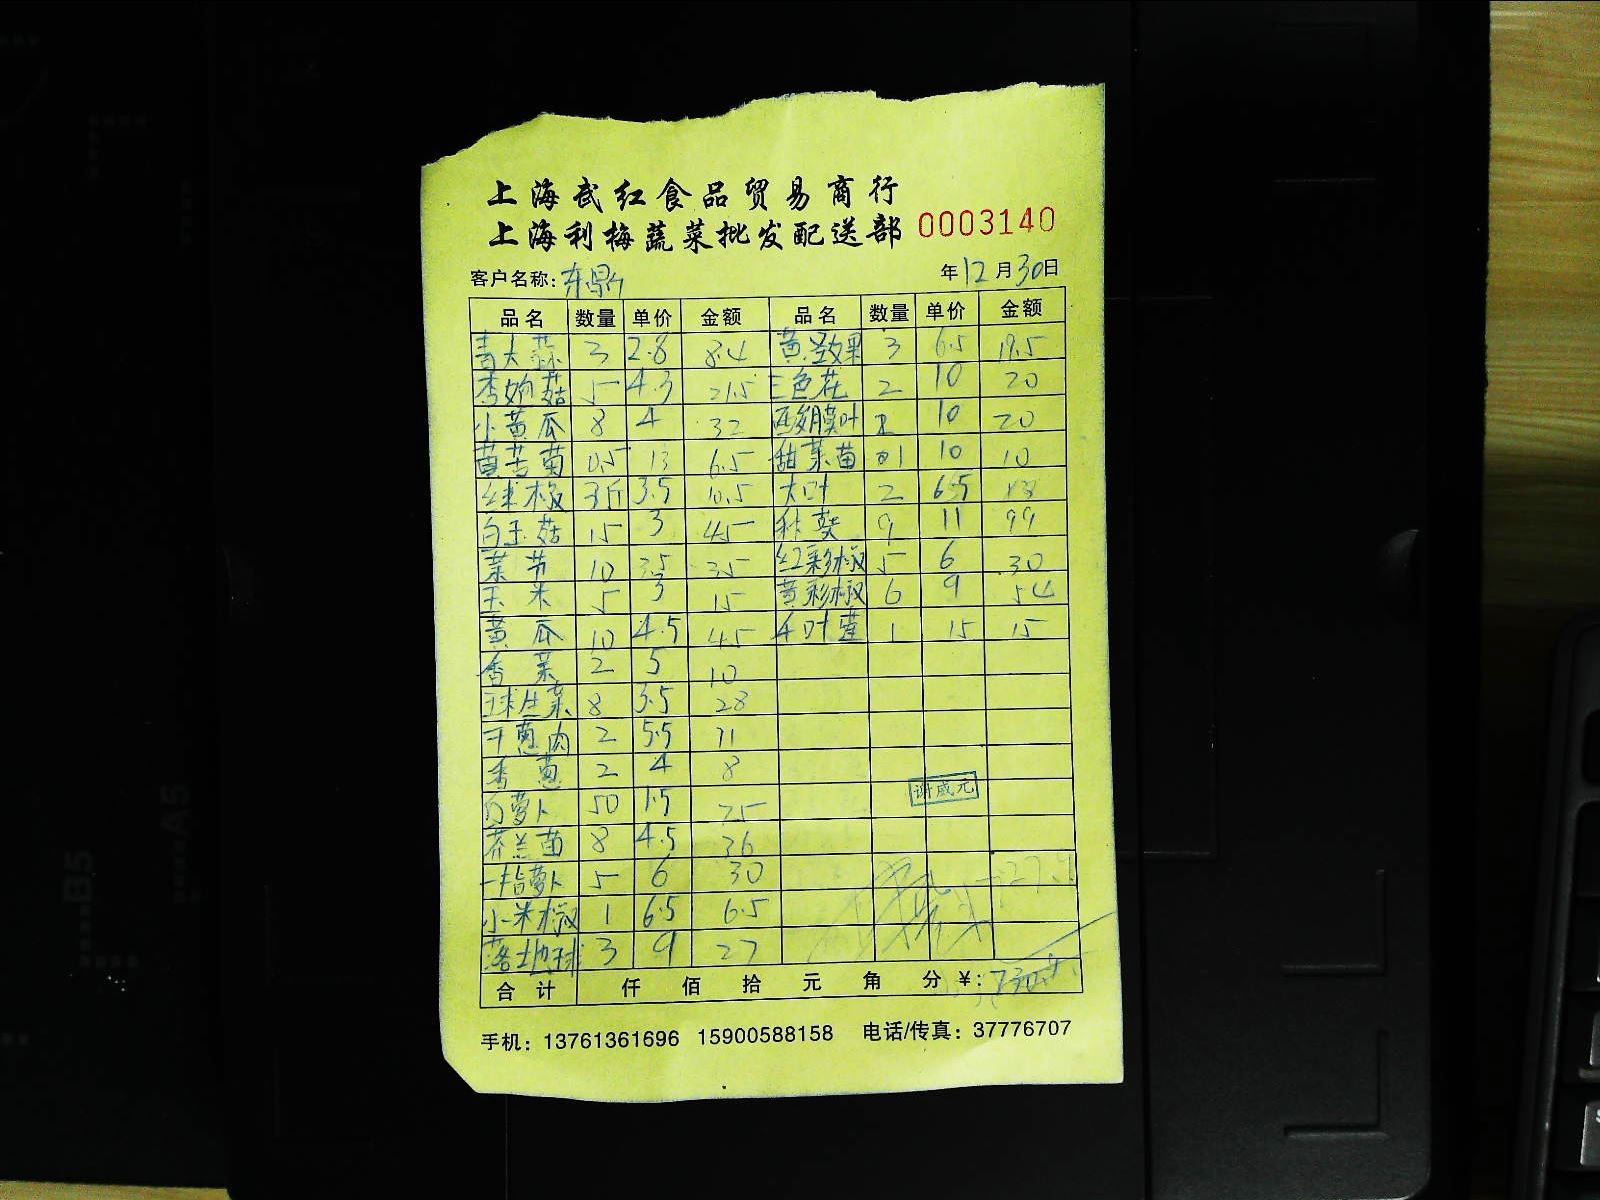 上海武红食品贸易商行
上海利梅蔬菜批发配送部 0003140
客户名称: 东鼎 年12月30日
品名 数量 单价 金额 品名 数量 单价 金额
青大蒜 3 2.8 8.4 黄 果 3 6.5 19.5
杏鲍菇 5 4.3 21.5 三色花 2 10 20
小黄瓜 8 4 32 叶 2 10 20
黄苦菊 0.5 13 6.5 甜菜苗 1 10 10
球椒 3斤 3.5 10.5 大叶 2 6.5
白玉菇 15 3 45 秋葵 9 11 99
菜节 10 3.5 35 红彩椒 5 6 30
玉米 5 3 15 黄彩椒 6 9 54
黄瓜 10 4.5 45 千叶 1 15 15
香菜 2 5 10
球生菜 8 3.5 28
干葱肉 2 5.5 11
香葱 2 4 8
白萝卜 50 1.5 75
芥兰苗 8 4.5 36
手指萝卜 5 6 30
小米椒 1 6.5 6.5
落地球 3 9 27
谢成元
合计 仟 佰 拾 元 角 分 ¥:
手机: 13761361696 15900588158 电话/传真: 37776707
B5
A5